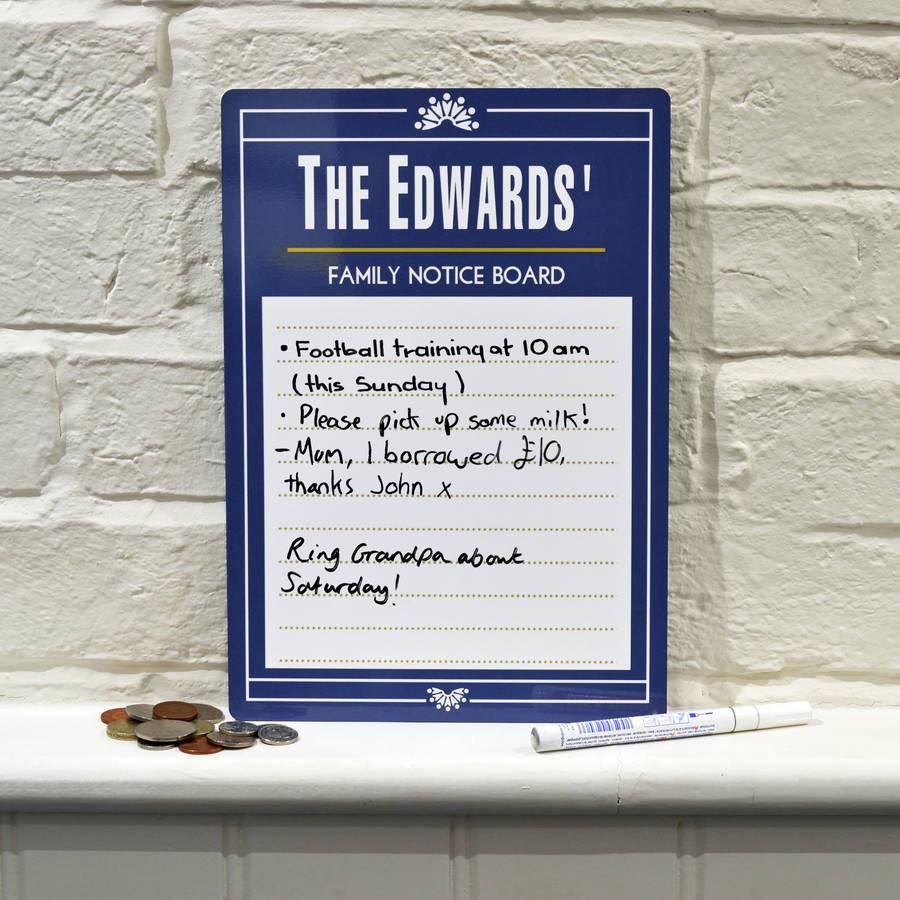 THE EDWARDS'
FAMILY NOTICE BOARD
• Football training at 10 am
(this Sunday)
• Please pick up some milk!
- Mum, I borrowed £10,
thanks John x
Ring Grandpa about
Saturday!